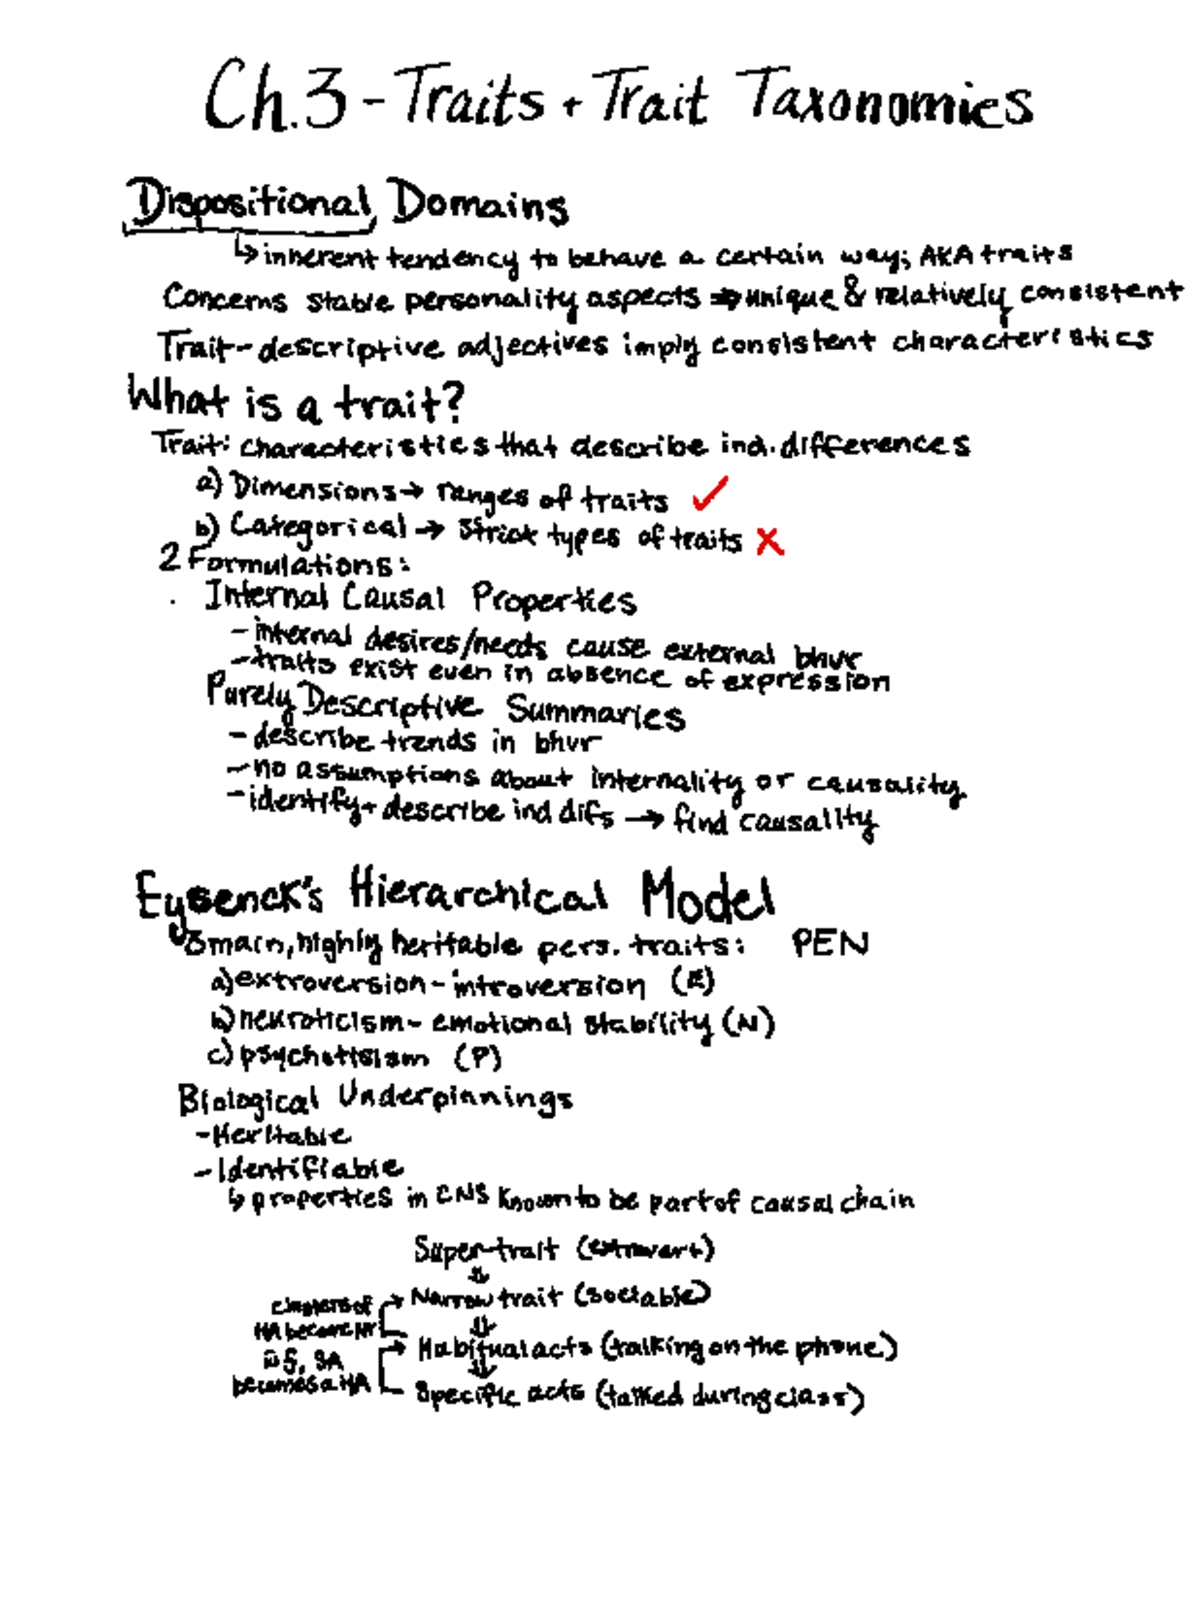 Ch.3 - Traits + Trait Taxonomies
Dispositional Domains
↳ inherent tendency to behave a certain way; AKA traits
Concerns stable personality aspects ⇒ unique & relatively consistent
Trait-descriptive adjectives imply consistent characteristics
What is a trait?
Trait: characteristics that describe ind. differences
a) Dimensions → ranges of traits ✓
b) Categorical → strict types of traits ✗
2 Formulations:
· Internal Causal Properties
- internal desires/needs cause external bhvr
- traits exist even in absence of expression
Purely Descriptive Summaries
- describe trends in bhvr
- no assumptions about internality or causality
- identify + describe ind difs → find causality
Eysenck's Hierarchical Model
↳ 3 main, highly heritable pers. traits: PEN
a) extroversion - introversion (E)
b) neuroticism - emotional stability (N)
c) psychotisism (P)
Biological Underpinnings
- Heritable
- Identifiable
↳ properties in CNS known to be part of causal chain
Super-trait (extrovert)
⇓
Narrow trait (sociable)
clusters of
HA become NT
⇓
Habitual acts (talking on the phone)
SA
becomes a HA
⇓
Specific acts (talked during class)